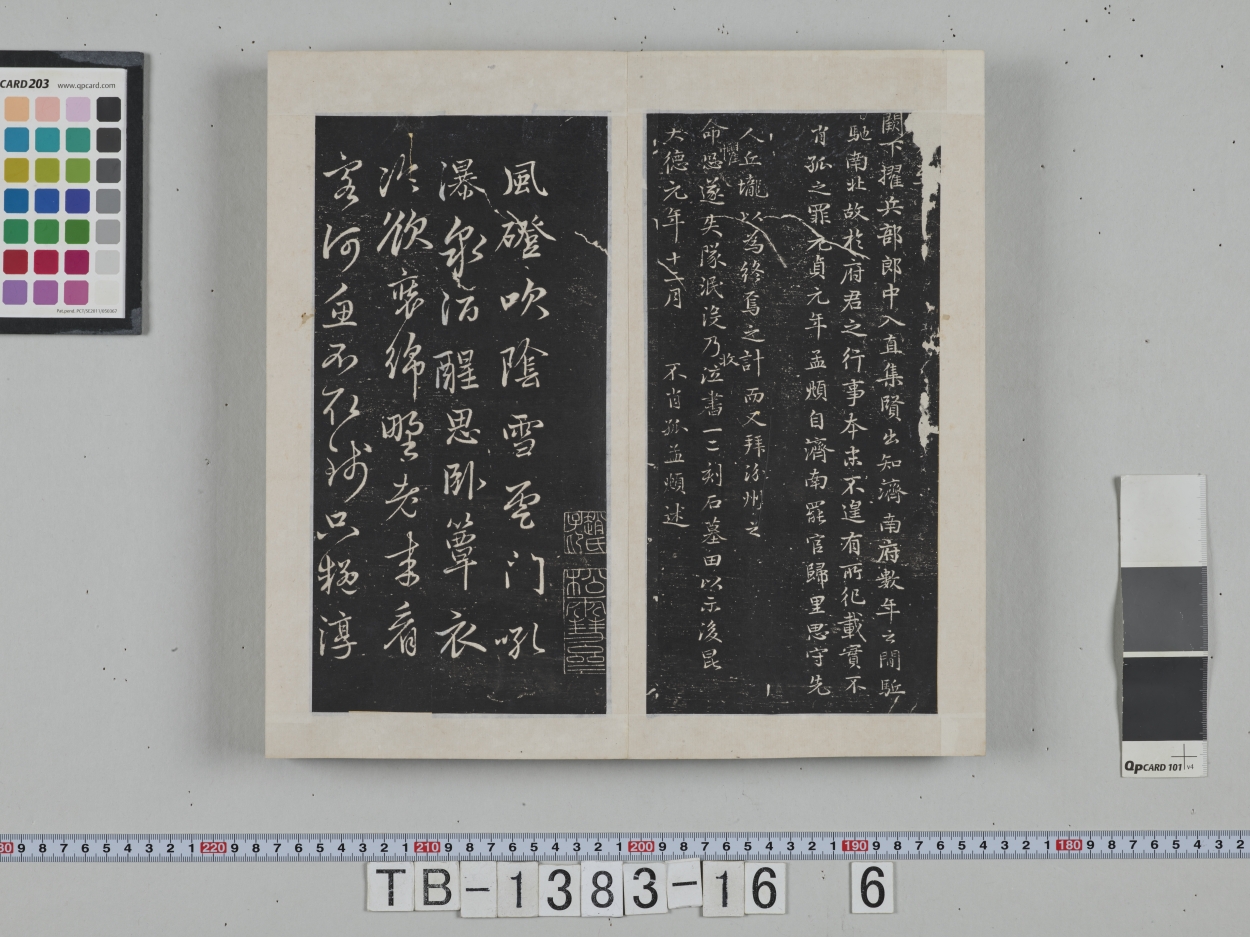 闕下擢兵部郎中入直集賢出知濟南府數年之間駈
馳南北故於府君之行事本末不遑有所紀載實不
肖孤之罪元貞元年孟頫自濟南罷官歸里思守先
人丘壠以為終焉之計而又拜汾州之
命懼
恐遂失隊泯沒乃泣書一二刻石墓田以示後昆
大德元年十二月 不肖孤孟頫述
趙氏子昂
松雪齋
風磴吹陰雪雲門吼
瀑泉酒醒思臥簟衣
冷欲裝綿野老來看
客河魚不取錢只疑淳
CARD 203 www.qpcard.com
QpCARD 101 v4
TB-1383-16 6